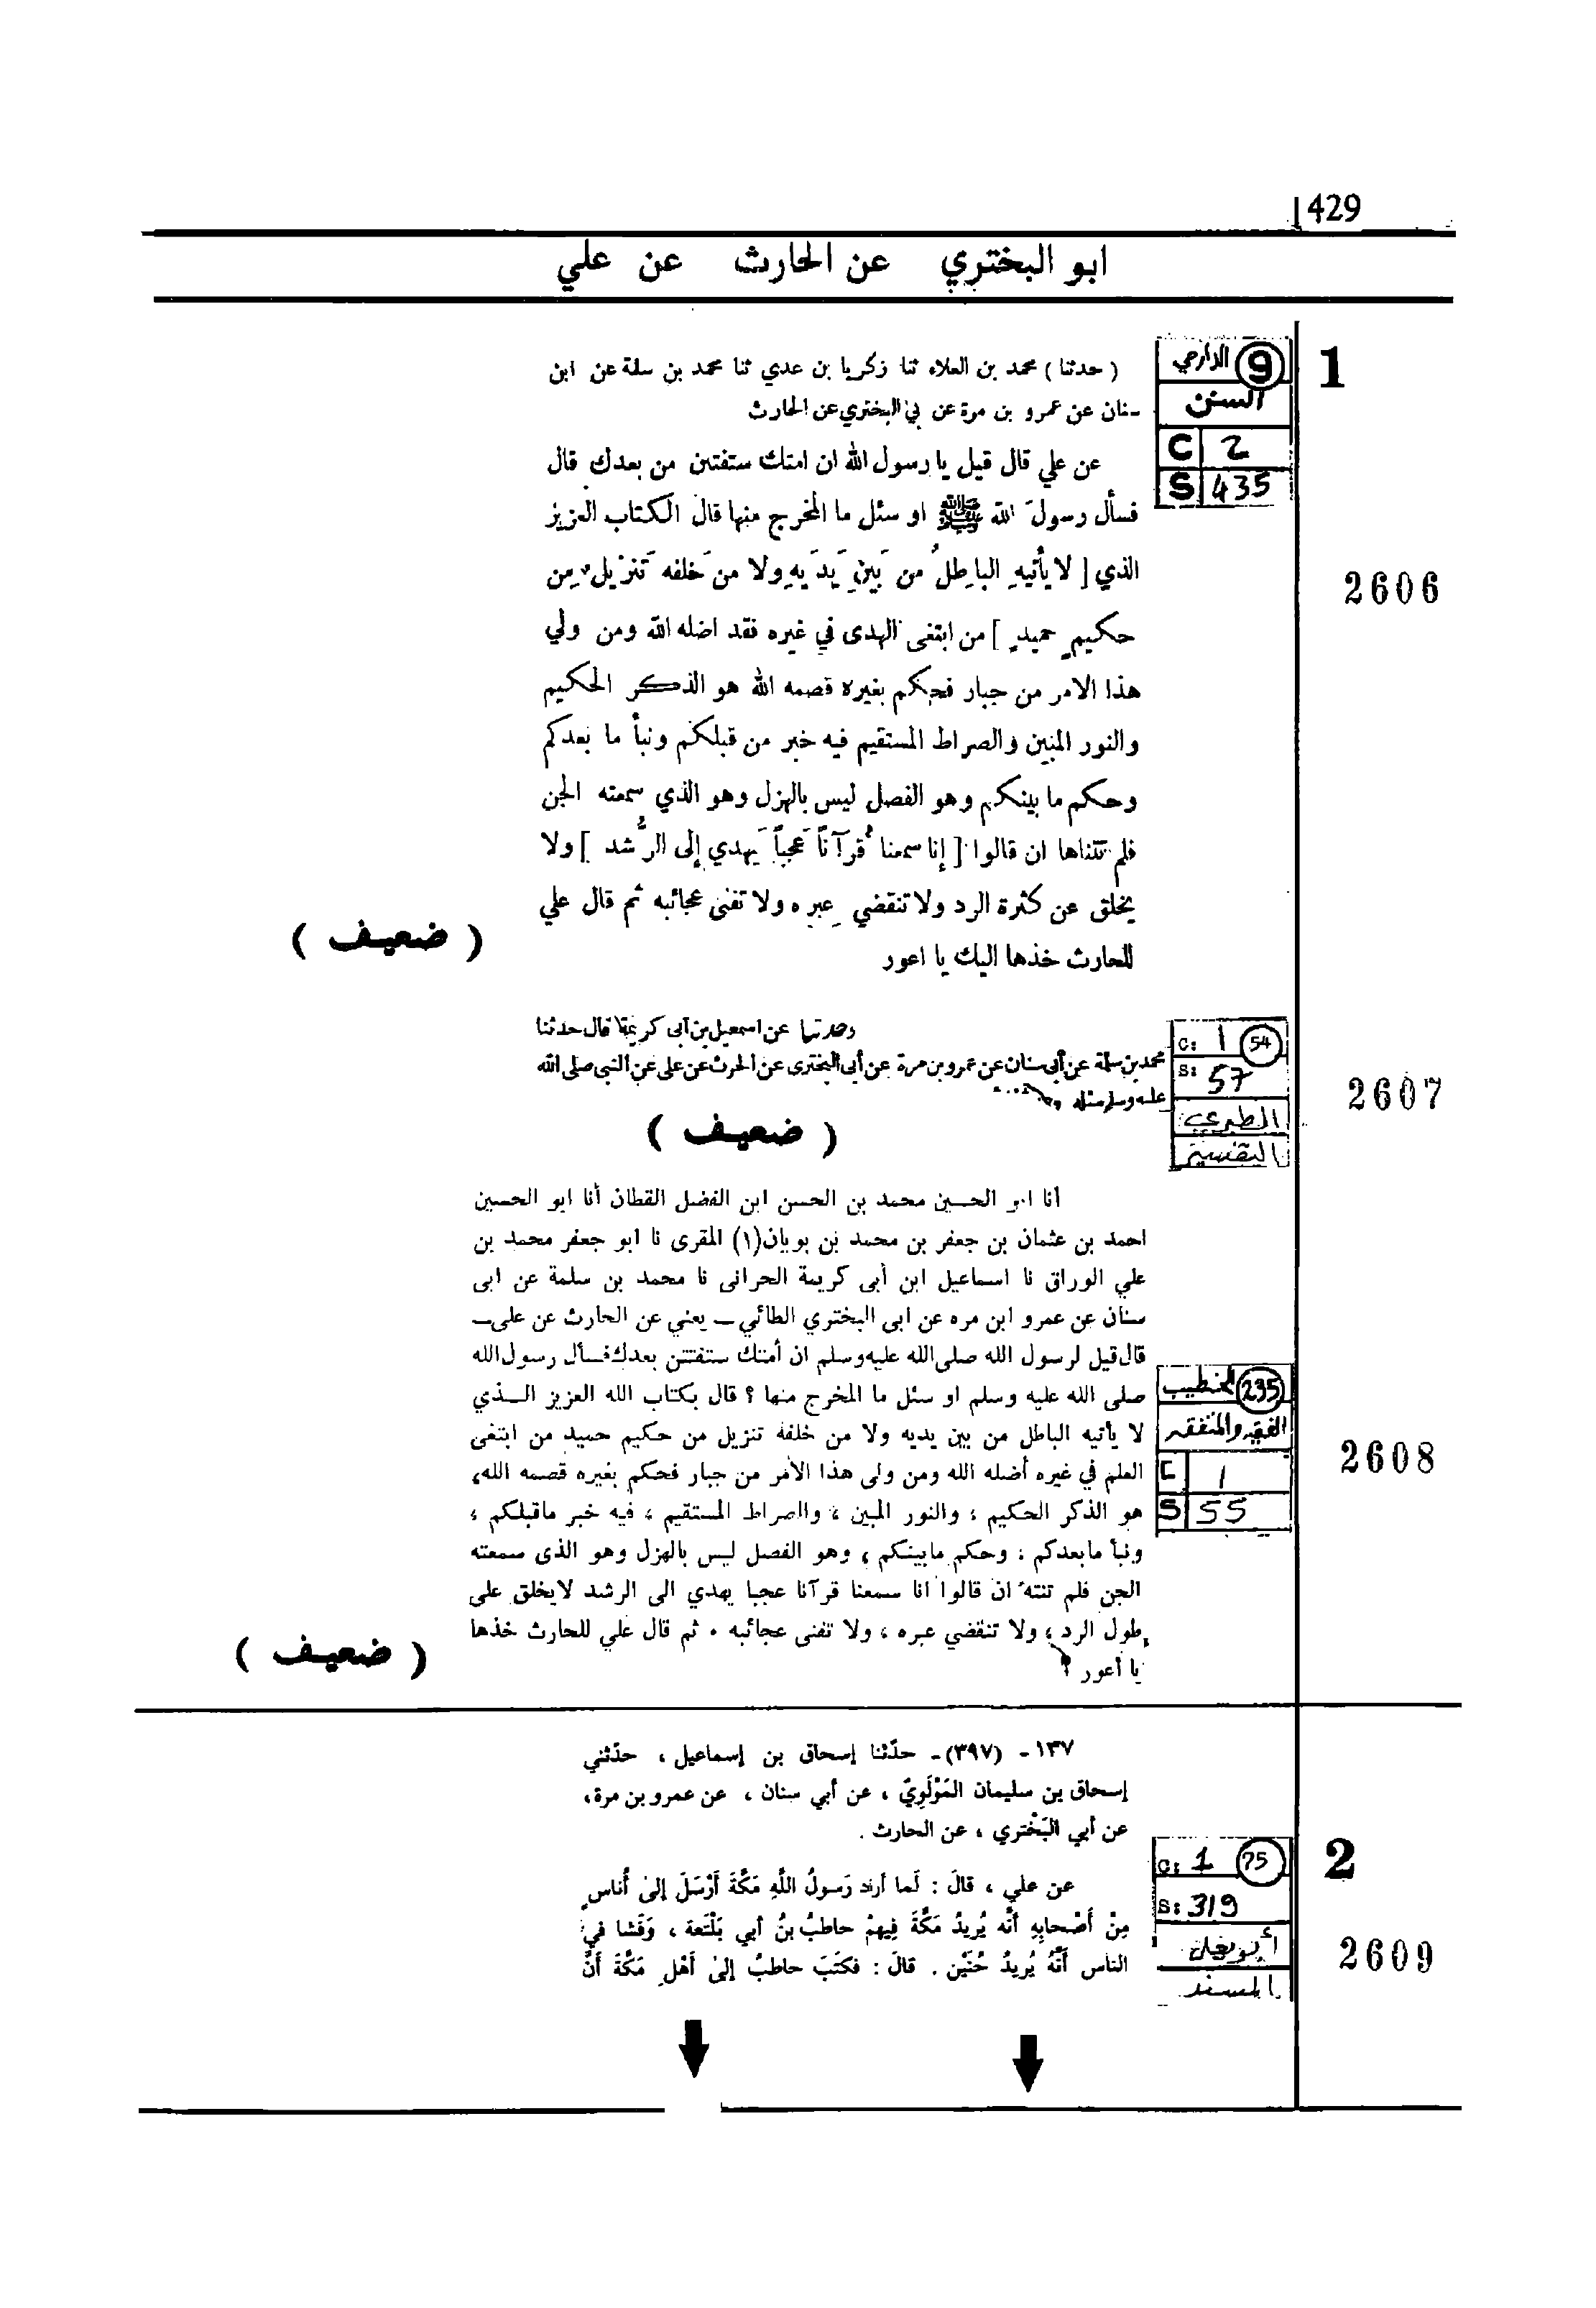 429
ابو البختري عن الحارث عن علي
1
9 الدارمي
السنن
C 2
S 435
( حدثنا ) محمد بن العلاء ثنا زكريا بن عدي ثنا محمد بن سلمة عن ابن
سنان عن عمرو بن مرة عن ابي البختري عن الحارث
2606
عن علي قال قيل يا رسول الله ان امتك ستفتتن من بعدك قال
فسأل رسول الله ﷺ او سئل ما المخرج منها قال الكتاب العزيز
الذي [ لا يأتيهِ الباطِلُ من بَينِ يَدَيهِ ولا من خَلفه تَنزيلٌ مِن
حكيمٍ حميدٍ ] من ابتغى الهدى في غيره فقد اضله الله ومن ولي
هذا الامر من جبار فحكم بغيره قصمه الله هو الذكر الحكيم
والنور المبين والصراط المستقيم فيه خبر من قبلكم ونبأ ما بعدكم
وحكم ما بينكم وهو الفصل ليس بالهزل وهو الذي سمعته الجن
فلم تتناها ان قالوا [ إنا سمعنا قُرآناً عَجباً يَهدي إلى الرُّشد ] ولا
يخلق عن كثرة الرد ولا تنقضي عِبره ولا تفنى عجائبه ثم قال علي
للحارث خذها اليك يا اعور
( ضعيف )
2607
C: 1 54
S: 57
الطبري
التفسير
وحدثنا عن اسمعيل بن أبى كريمة قال حدثنا
محمد بن سلمة عن أبى سنان عن عمرو بن مرة عن أبى البخترى عن الحرث عن على عن النبى صلى الله
عليه وسلم مثله
( ضعيف )
أنا ابو الحسين محمد بن الحسن ابن الفضل القطان أنا ابو الحسين
احمد بن عثمان بن جعفر بن محمد بن بويان(١) المقرى نا ابو جعفر محمد بن
علي الوراق نا اسماعيل ابن أبى كريمة الحرانى نا محمد بن سلمة عن ابى
سنان عن عمرو ابن مره عن ابى البختري الطائي ــ يعني عن الحارث عن على ــ
قال قيل لرسول الله صلى الله عليه وسلم ان أمتك ستفتتن بعدك فسأل رسول الله
صلى الله عليه وسلم او سئل ما المخرج منها ؟ قال بكتاب الله العزيز الــذي
لا يأتيه الباطل من بين يديه ولا من خلفه تنزيل من حكيم حميد من ابتغى
العلم في غيره أضله الله ومن ولى هذا الأمر من جبار فحكم بغيره قصمه الله،
هو الذكر الحكيم ، والنور المبين ، والصراط المستقيم ، فيه خبر ماقبلكم ،
ونبأ مابعدكم ، وحكم مابينكم ، وهو الفصل ليس بالهزل وهو الذى سمعته
الجن فلم تنته ان قالوا انا سمعنا قرآنا عجبا يهدي الى الرشد لايخلق على
طول الرد ، ولا تنقضي عبره ، ولا تفنى عجائبه ٠ ثم قال علي للحارث خذها
يا أعور
( ضعيف )
235 الخطيب
الفقيه والمتفقه
C 1
S 55
2608
١٣٧ - (٣٩٧)- حدّثنا إسحاق بن إسماعيل ، حدّثني
إسحاق بن سليمان المَوْلَوِيّ ، عن أبي سنان ، عن عمرو بن مرة،
عن أبي البَخْتري ، عن الحارث .
2
C: 1 75
S: 319
أبو يعلى
المسند
2609
عن علي ، قالَ : لَما أراد رَسولُ اللَّهِ مَكَّةَ أَرْسَلَ إلىٰ أُناسٍ
مِنْ أَصْحابِهِ أنَّه يُريدُ مَكَّةَ فِيهِمْ حاطبُ بنُ أبي بَلْتَعة ، وَفَشا في
الناس أَنَّهُ يُريدُ حُنَيْن . قالَ : فكَتَبَ حاطبٌ إلىٰ أَهْلِ مَكَّةَ أَنَّ